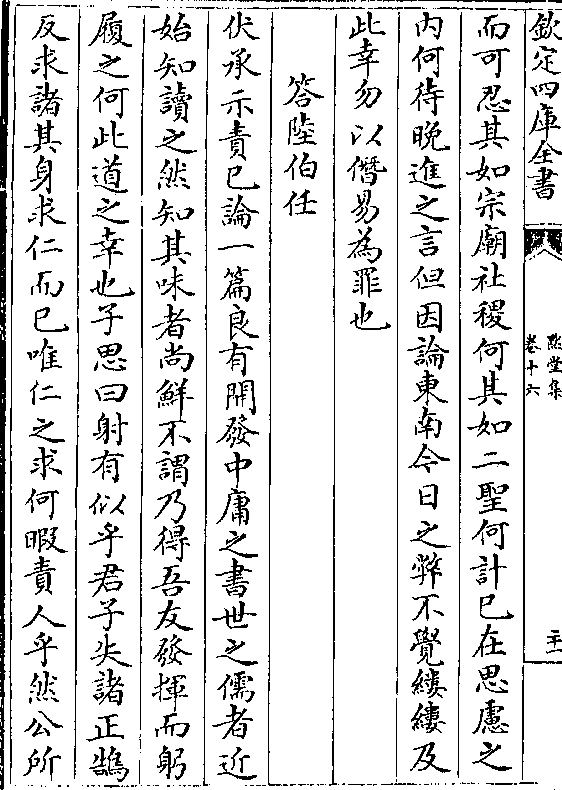 欽定四庫全書
默堂集
卷十六
二十一
而可忍其如宗廟社稷何其如二聖何計已在思慮之
内何待晚進之言但因論東南今日之弊不覺縷縷及
此幸勿以僭易為罪也
答陸伯任
伏承示責已論一篇良有開發中庸之書世之儒者近
始知讀之然知其味者尚鮮不謂乃得吾友發揮而躬
履之何此道之幸也子思曰射有似乎君子失諸正鵠
反求諸其身求仁而已唯仁之求何暇責人乎然公所